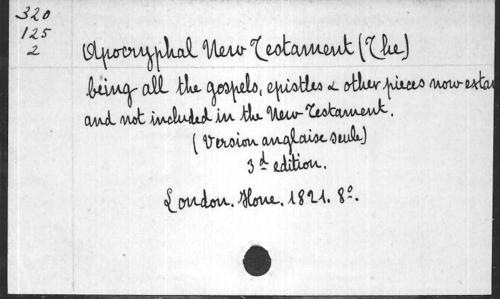 320
125
2
Apocryphal New Testament (The)
being all the gospels, epistles & other pieces now extan
and not included in the New Testament.
(Version anglaise seule)
3d edition.
London. Hone. 1821. 8º.